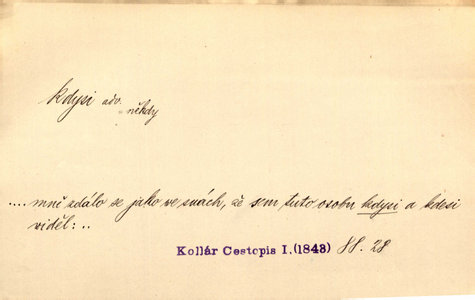 kdysi adv.
někdy
.... mně zdálo se jako ve snách, že sem tuto osobu kdysi a kdesi
viděl: ..
Kollár Cestopis I.(1843) 28